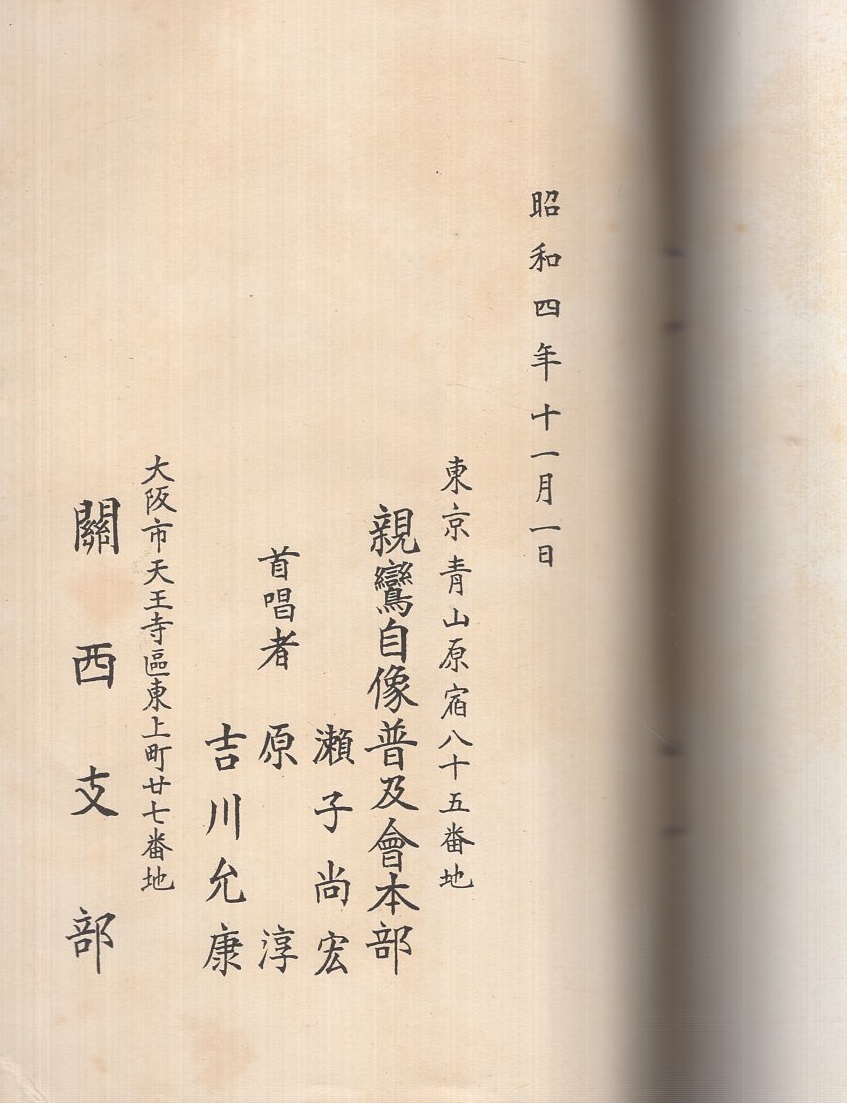 昭和四年十一月一日
東京青山原宿八十五番地
親鸞自像普及會本部
瀬子尚宏
首唱者 原 淳
吉川允康
大阪市天王寺區東上町廿七番地
關西支部